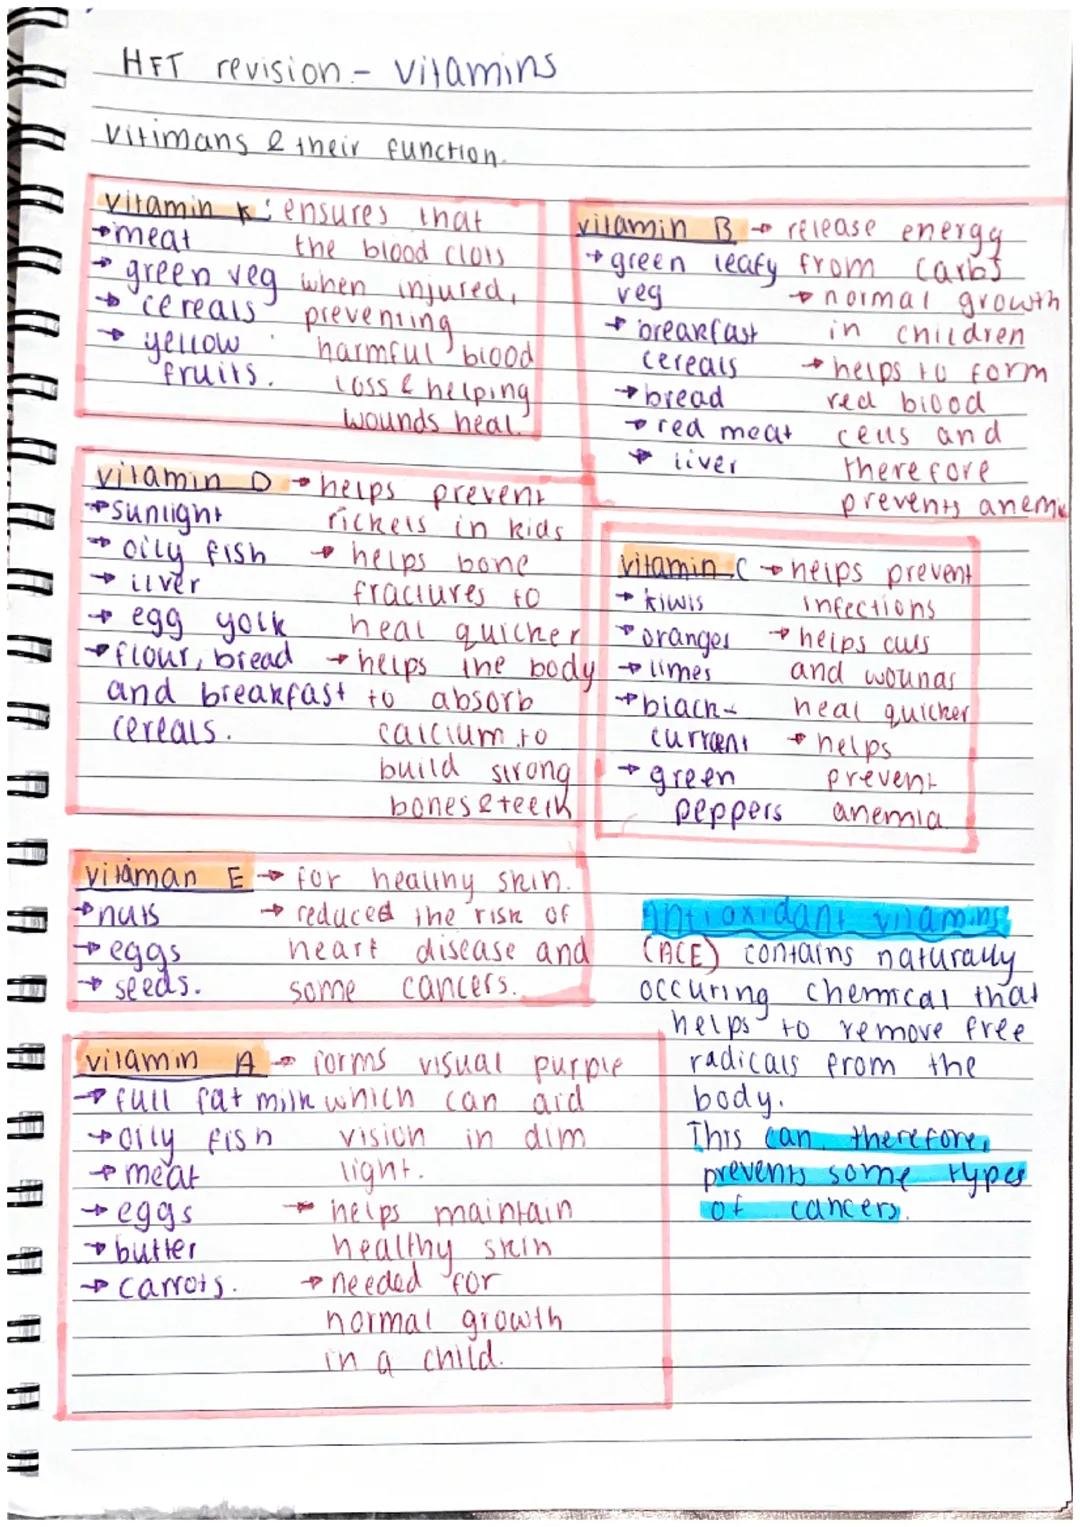 HFT revision - vitamins
Vitimans & their function.
vitamin K: ensures that
→meat the blood clots
→ green veg when injured,
→ cereals preventing
→ yellow harmful blood
fruits. loss & helping
wounds heal.
vitamin B → release energy
→green leafy from carbs
veg → normal growth
→ breakfast in children
cereals → helps to form
→bread red blood
→ red meat cells and
→ liver therefore
prevents anemia
vitamin D → helps prevent
→sunlight rickets in kids
→ oily fish → helps bone
→ liver fractures to
→ egg yolk heal quicker
→flour, bread → helps the body
and breakfast to absorb
cereals. calcium to
build strong
bones & teeth
vitamin C → helps prevent
→ kiwis infections
→ oranges → helps cuts
→ limes and wounds
→ black- heal quicker
currant → helps
→ green prevent
peppers anemia
vitaman E → for healthy skin.
→nuts → reduced the risk of
→ eggs heart disease and
→ seeds. some cancers.
Antioxidant vitamins
(ACE) contains naturally
occuring chemical that
helps to remove free
radicals from the
body.
This can therefore,
prevents some types
of cancers.
vitamin A → forms visual purple
→ full fat milk which can aid
→ oily fish vision in dim
→ meat light.
→ eggs → helps maintain
→ butter healthy skin
→ carrots. → needed for
normal growth
in a child.